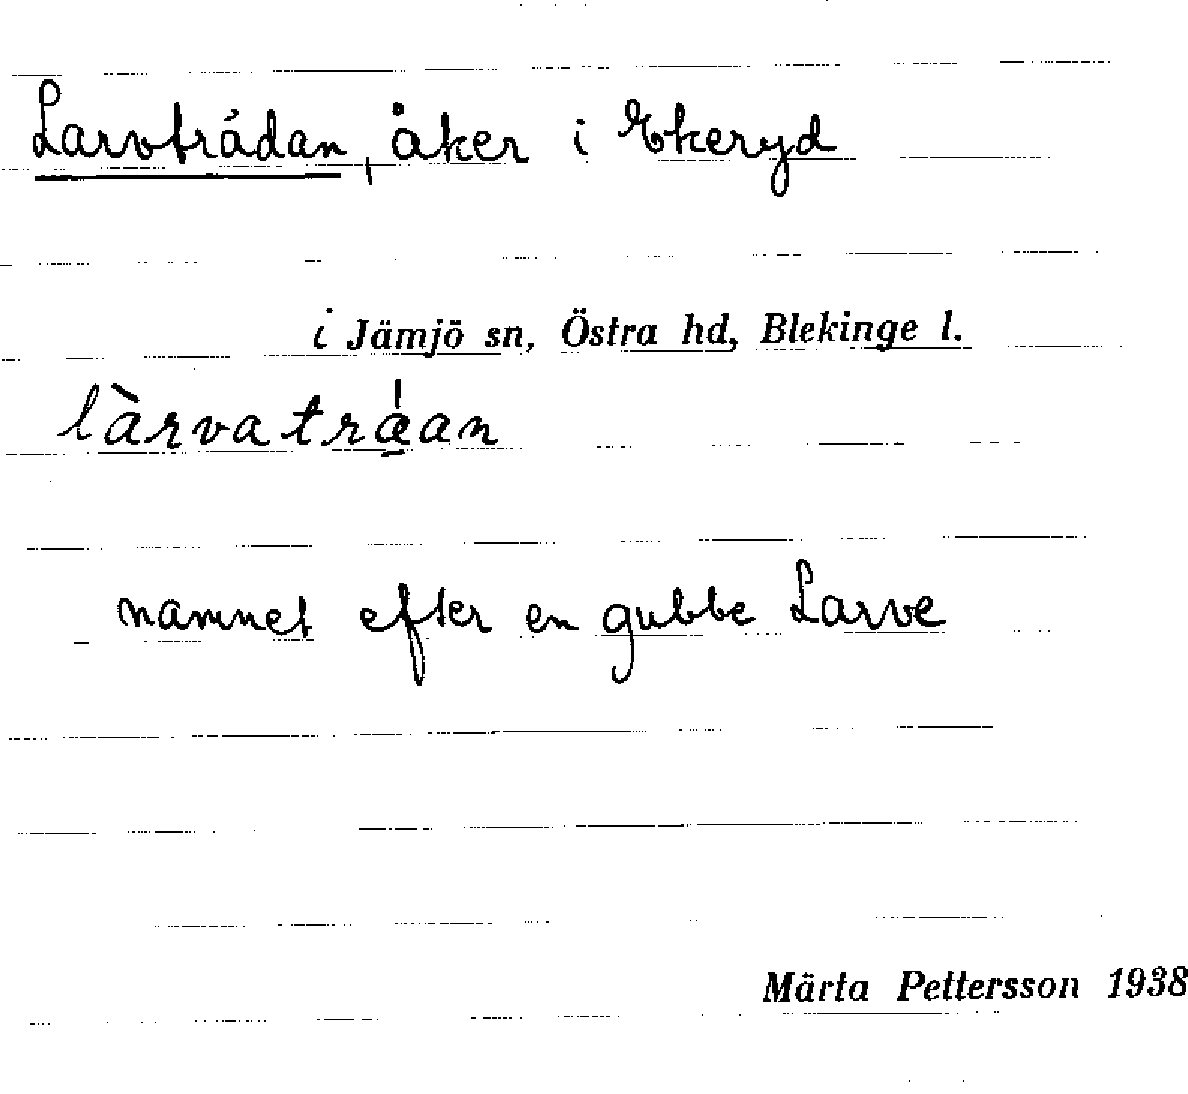 Larvträdan, åker i Ekeryd
i Jämjö sn, Östra hd, Blekinge l.
làrvatræ̀an
namnet efter en gubbe Larve
Märta Pettersson 1938